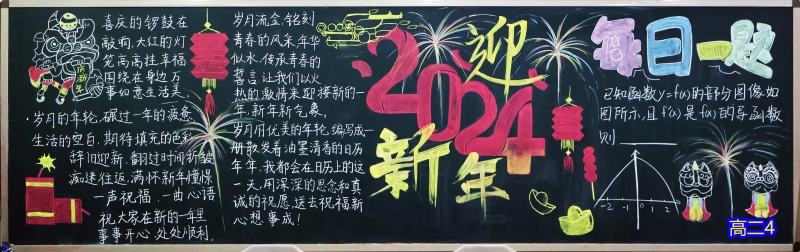 喜庆的锣鼓在
敲响,大红的灯
笼高高挂,幸福
围绕在身边,万
事如意生活美
庆新年
·岁月的年轮,碾过一年的疲惫
生活的空白,期待填充的色彩
辞旧迎新,翻过时间折皱
痴迷往返,满怀新年憧憬
一声祝福,一曲心语
祝大家在新的一年里
事事开心,处处顺利,
岁月流金,铭刻
青春的风采,年华
似水,传承青春的
誓言,让我们以火
热的激情来迎接新的一
年,新年新气象,
岁月用优美的年轮,编写成一
册散发着油墨清香的日历
年年,我都会在日历上的这
一天,用深深的思念和真
诚的祝愿,送去祝福新
心想事成!
迎
2024
新年
每日一题
已知函数y=f(x)的部分图像如
图所示,且f'(x)是f(x)的导函数
则
-2 -1 0 1 2
高二4